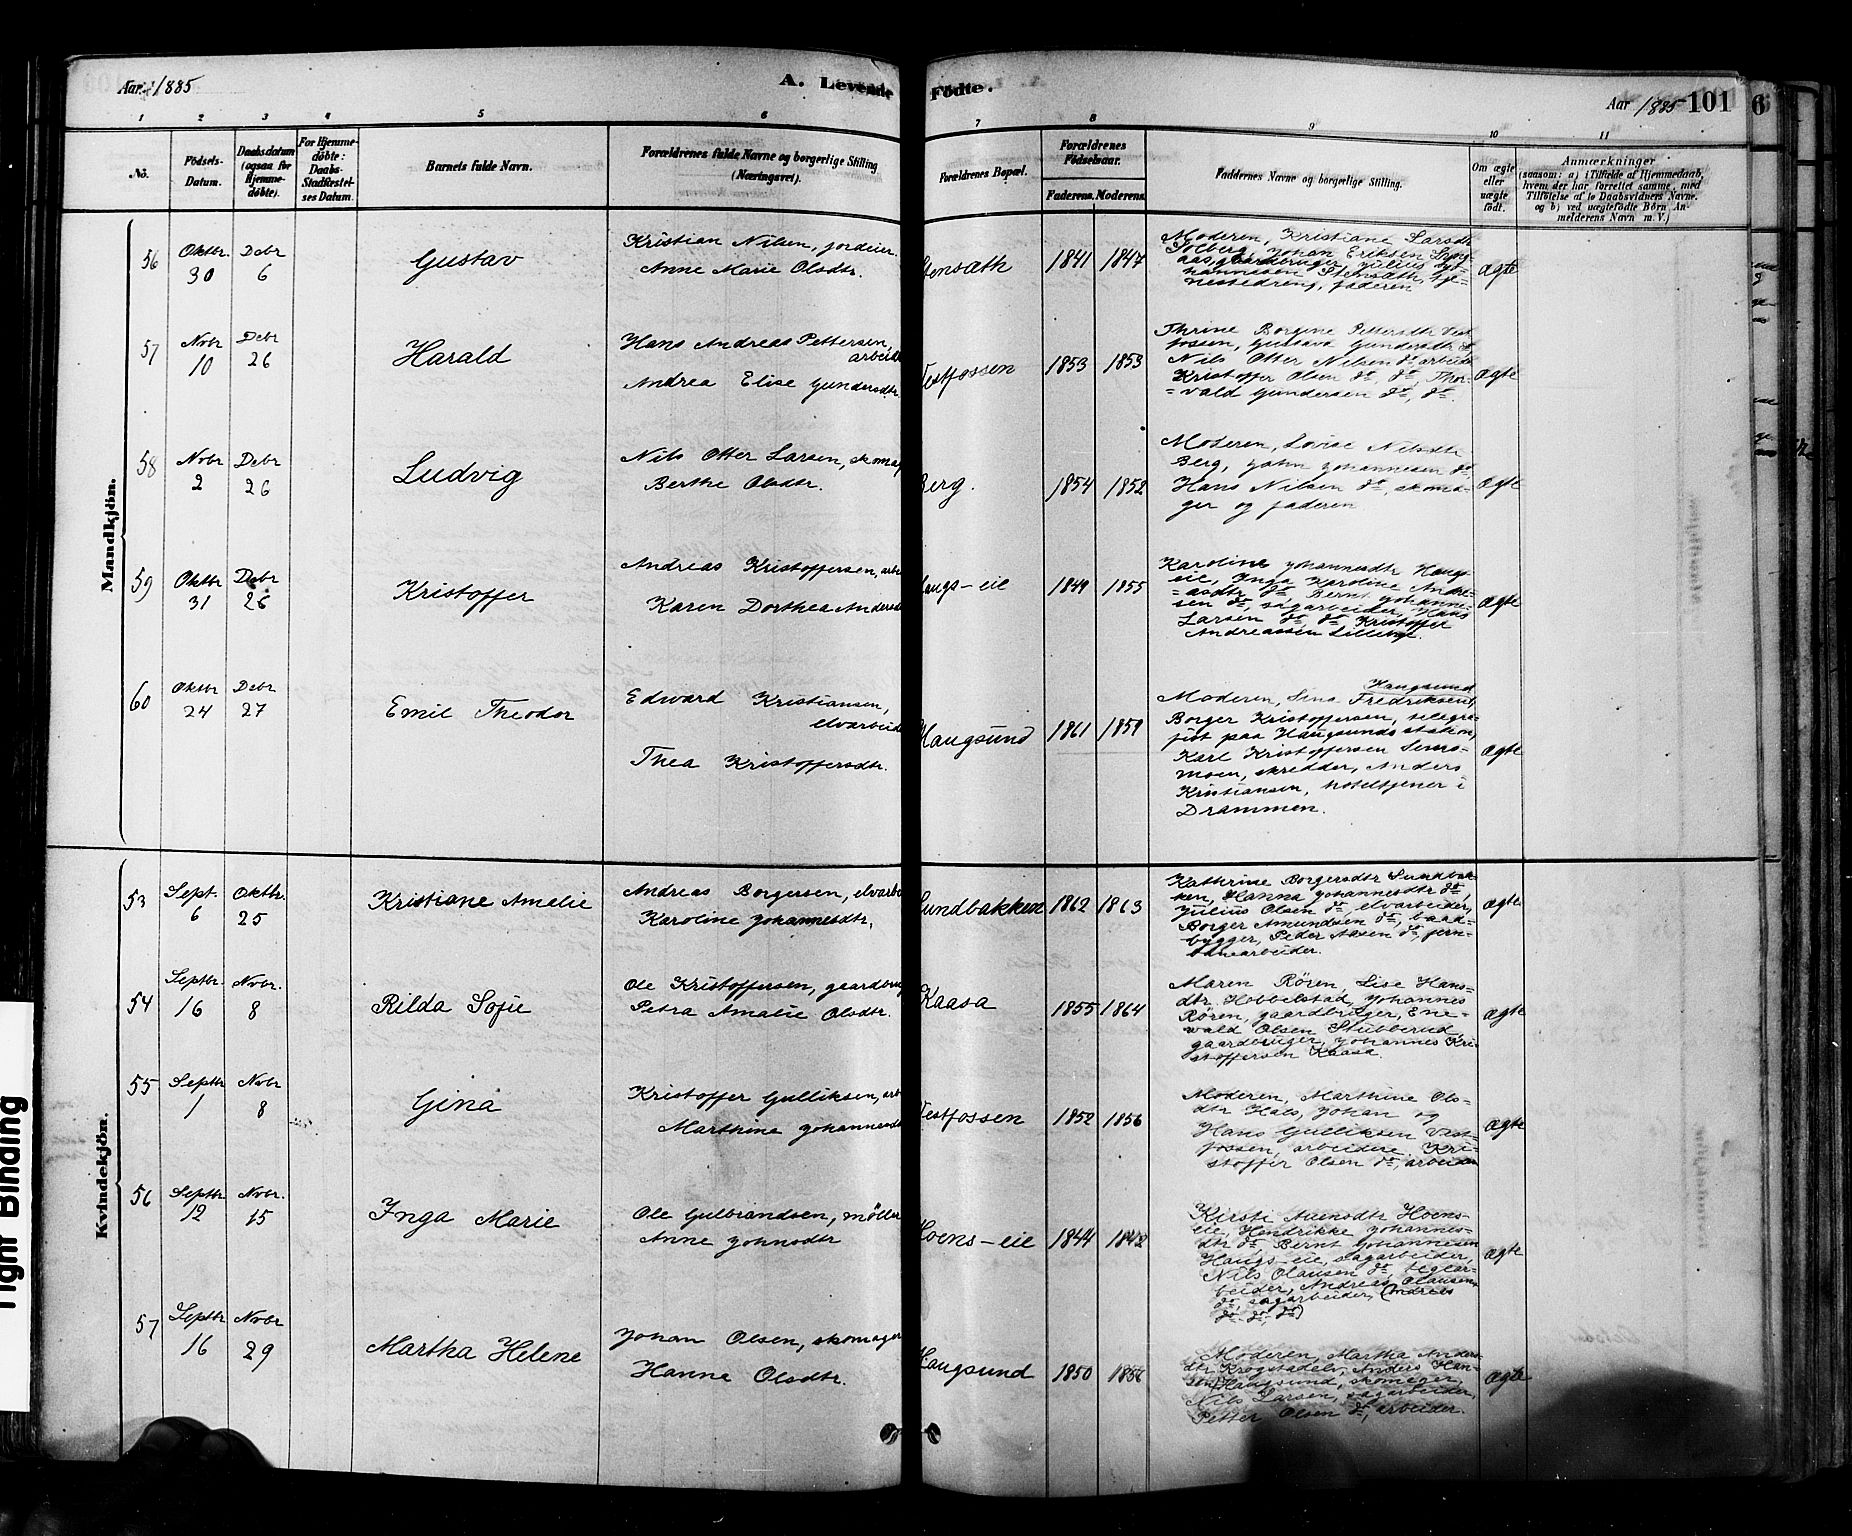 Aar 1885
A. Levende Fødte.
Aar 1885 101
6
1 2 3 4 5 6 7 8 9 10 11
No.
Fødsels-Datum.
Daabsdatum (ogsaa for Hjemmedøbte).
For Hjemmedøbte: Daabs-Stadfæstelses Datum.
Barnets fulde Navn.
Forældrenes fulde Navne og borgerlige Stilling (Næringsvei).
Forældrenes Bopæl.
Forældrenes Fødselsaar.
Faderens. Moderens.
Faddernes Navne og borgerlige Stilling.
Om ægte eller uægte født.
Anmærkninger
(saasom: a) i Tilfælde af Hjemmedaab,
hvem der har forrettet samme, med
Tilføielse af to Daabsvidners Navne.
og b) ved uægtefødte Børn, An-
melderens Navn m. V.)
Mandkjön.
56 Oktbr. 30 Debr 6 Gustav
Kristian Nilsen, jordeier.
Anne Marie Olsdtr.
Stensæth 1841 1847
Moderen, Kristiane Larsdtr
Solberg, Johan Eriksen
gaardbruger, Julius Jo-
hannesen Stensæth, tje-
nestedreng, faderen
ægte
57 Nvbr 10 Debr 26 Harald
Hans Andreas Pettersen,
arbeid
Andrea Elise Gundersdtr.
Vestfossen 1853 1853
Thrine Borgine Pettersdtr Vest-
fossen, Gustava Gundersdtr dº
Nils Otter Nilsen dº arbeid
Kristoffer Olsen dº, dº, Thor-
=vald Gundersen dº, dº.
ægte
58 Nvbr 2 Debr 26 Ludvig
Nils Otter Larsen, skomag
Berthe Olsdtr.
Berg. 1854 1852
Moderen, Lovise Nilsdtr
Berg, John Johannesen dº,
Hans Nilsen dº, skoma-
ger og faderen
ægte
59 Oktbr 31 Debr 26 Kristoffer
Andreas Kristoffersen, arb
Karen Dorthea Andersd
Haugs-eie 1849 1855
Karoline Johannesdtr Haugs-
eie, Inga Karoline Andre-
=asdtr dº Bernt Johanne-
sen dº, sagarbeider, Hans
Larsen dº, dº Kristoffer
Andreassen
ægte
60 Oktbr 24 Debr 27 Emil Theodor
Edward Kristiansen,
elvarbeid
Thea Kristoffersdtr.
Haugsund 1861 1859
Haugsund
Moderen, Lina Fredriksen,
Borger Kristoffersen, telegra-
fist paa Haugsunds station,
Karl Kristoffersen Sems-
moen, skredder, Anders
Kristiansen, hoteltjener i
Drammen.
ægte
Kvindekjön.
53 Sept. 6 Oktbr. 25 Kristiane Amalie
Andreas Borgersen, elvarb
Karoline Johannesdtr.
Sundbakken 1862 1863
Kathrine Borgersdtr Sundbak-
ken, Hanna Johannesdtr dº,
Julius Olsen dº, elvarbeider,
Borger Amundsen dº, baad-
bygger, Peder Aasen dº, jern-
banearbeider.
ægte
54 Septbr. 16 Nvbr. 8 Rilda Sofie
Ole Kristoffersen, gaardbrug
Petra Amalie Olsdtr.
Kaasa 1855 1864
Maren Rören, Lise Hans-
dtr Hobbelstad, Johannes
Rören, gaardbruger, Ene-
wald Olsen Stubberud,
gaardbruger, Johannes Kri-
stoffersen Kaasa.
ægte
55 Septbr 1 Nvbr 8 Gina
Kristoffer Gulliksen, arb
Marthine Johannesd
Vestfossen 1852 1856
Moderen, Marthine Ols-
dtr Hals, Johan og
Hans Gulliksen Vest-
fossen, arbeidere. Kri-
stoffer Olsen dº, arbeider
ægte
56 Septbr 12 Nvbr. 15 Inga Marie
Ole Gulbrandsen, möller
Anne Johnsdtr
Hoens-eie 1844
Kirsti Hoens-
eie, Hendrikke Johannes-
dtr dº Bernt Johannesen
Haugs-eie, sagarbeider,
Nils Olausen dº, teglar-
beider, Andreas Olausen,
dº, sagarbeider, (Andreas
dº, dº, dº)
ægte
57 Septbr 16 Nvbr 29 Martha Helene
Johan Olsen, skomager
Hanna Olsdtr.
Haugsund 1850 1856
Moderen, Martha Anders-
dtr Krogstadelv, Anders Han-
sen Haugsund, skomager,
Nils Larsen, sagarbeider,
Petter Olsen dº, arbeider.
ægte
Tight Binding